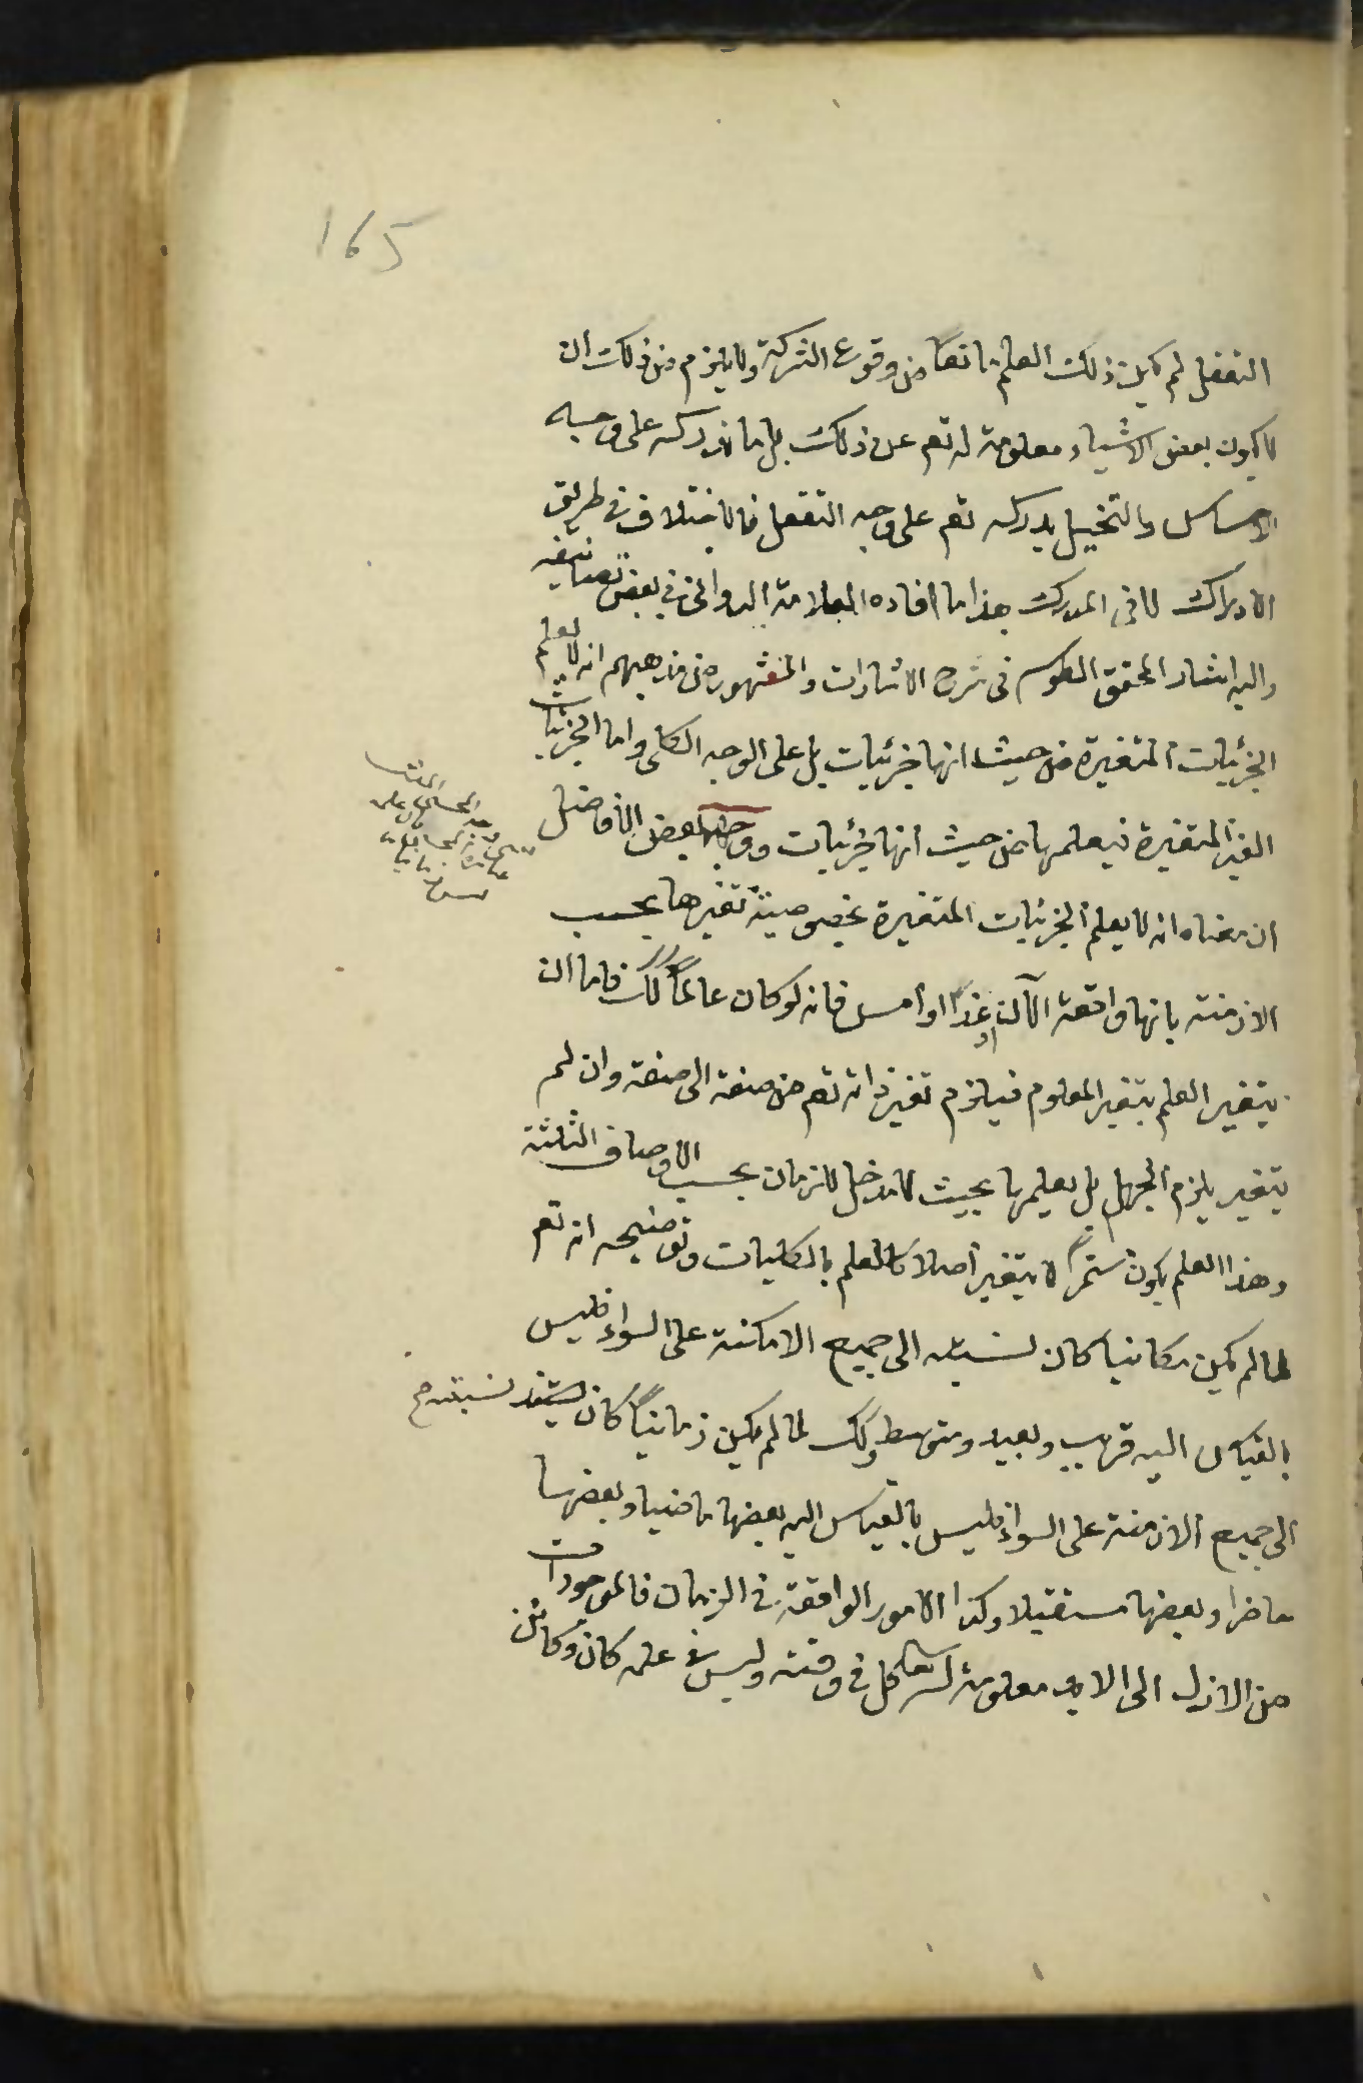 165
التعقل لم يكن ذلك العلم مانعا من وقوع الشركة ولا يلزم من ذلك ان
لا يكون بعض الاشياء معلومة له تعم عن ذلك بل ما ندركه على وجه
الاحساس والتخيل يدركه تعم على وجه التعقل فالاختلاف في طريق
الادراك لا في المدرك هذا ما افاده العلامة الدواني في بعض تصانيفه
واليه اشار المحقق الطوسي في شرح الاشارات والمشهور من مذهبهم انه لا يعلم
الجزئيات المتغيرة من حيث انها جزئيات بل على الوجه الكلي واما الجزئيات
الغير المتغيرة فيعلمها من حيث انها جزئيات ووجهه بعض الافاضل
ان معناه انه لا يعلم الجزئيات المتغيرة بخصوصية تغيرها بحسب
الازمنة بانها واقعة الآن او غدا او امس فانه لو كان عالما كك فاما ان
يتغير العلم بتغير المعلوم فيلزم تغير ذاته تعم من صفة الى صفة وان لم
يتغير يلزم الجهل بل يعلمها بحيث لا مدخل للزمان بحسب الاوصاف الثلثة
وهذا العلم يكون مستمرا لا يتغير اصلا كالعلم بالكليات وتوضيحه انه تعم
لما لم يكن مكانيا كان نسبته الى جميع الامكنة على السواء فليس
بالقياس اليه قريب وبعيد ومتوسط وكك لما لم يكن زمانيا كان نسبته
الى جميع الازمنة على السواء فليس بالقياس اليه بعضها ماضيا وبعضها
حاضرا وبعضها مستقبلا وكذا الامور الواقعة في الزمان فالموجودات
من الازل الى الابد معلومة له تعالى كل في وقته وليس في علمه كان وكائن